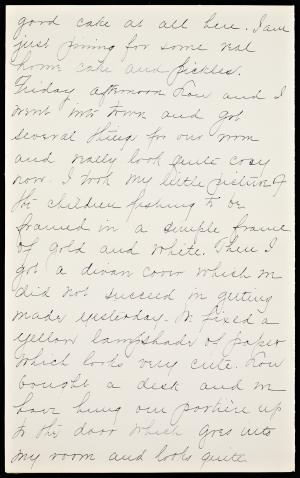 good cake at all here. I am
just pining for some real
home cake and pickles.
Friday afternoon Lou and I
went into town and got
several things for our room
and really look quite cosy
now. I took my little picture of
the children fishing to be
framed in a simple frame
of gold and white. Then I
got a divan cover which we
did not succeed in getting
made yesterday. We fixed a
yellow lampshade of paper
which looks very cute. Lou
bought a desk and we
have hung our portière up
to the door which goes into
my room and looks quite